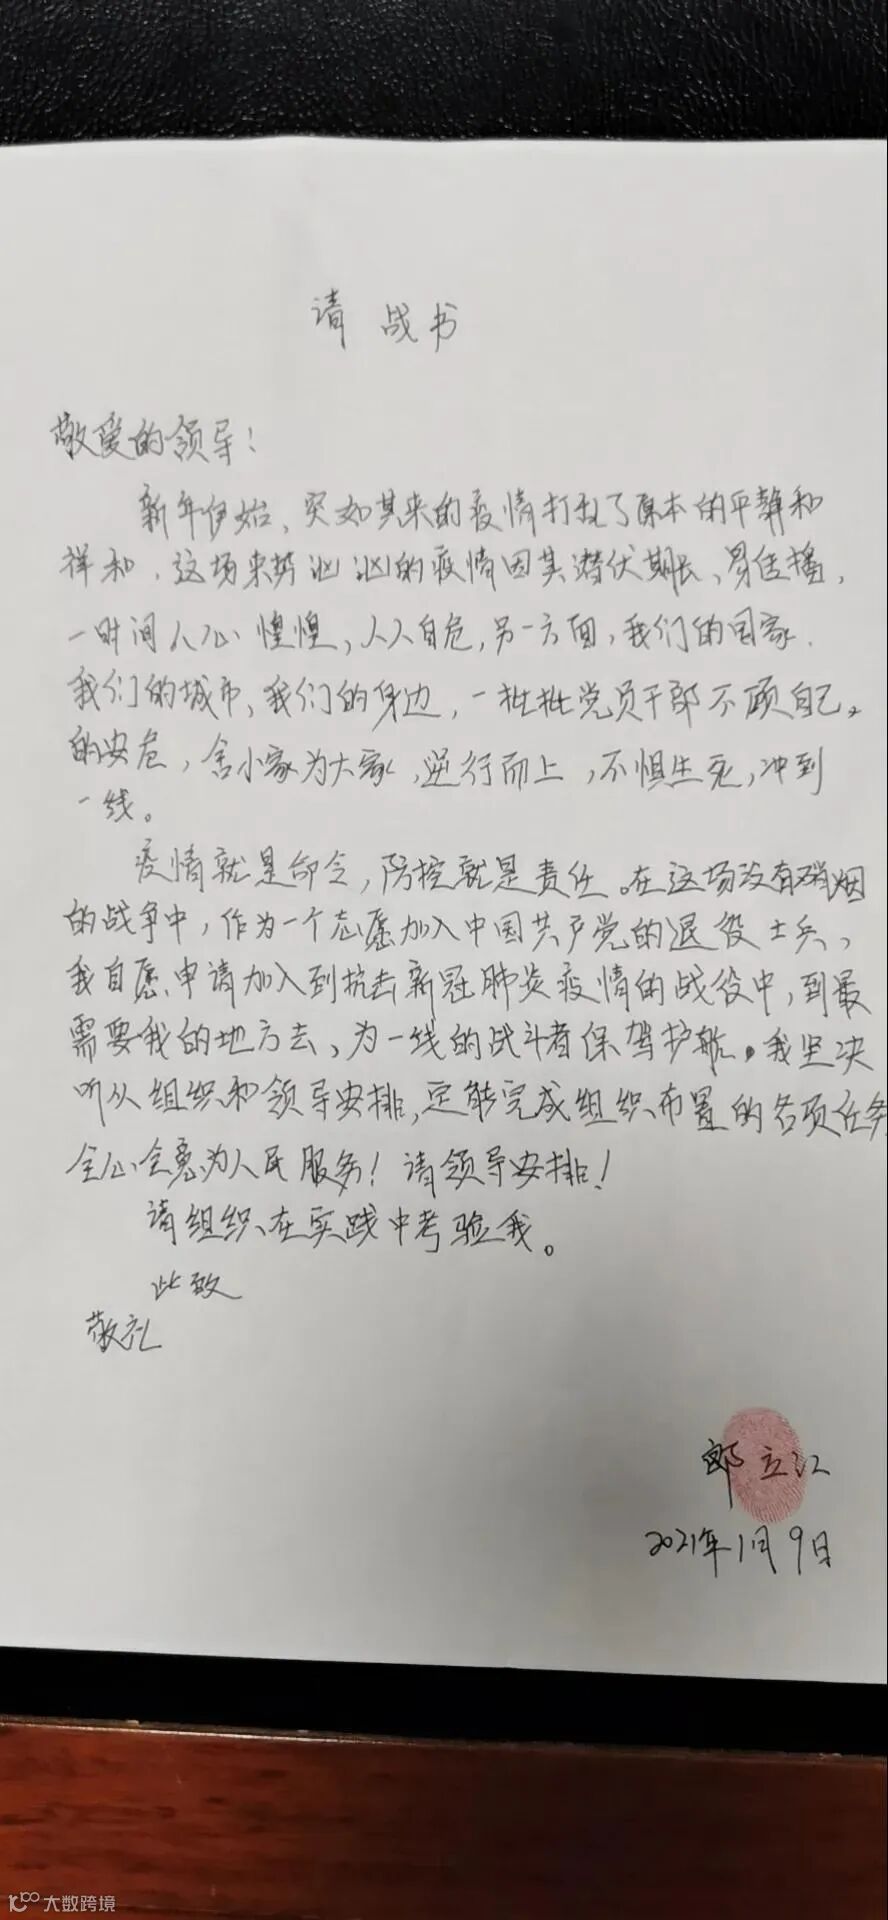 请战书
敬爱的领导!
新年伊始、突如其来的疫情打乱了原本的平静和
祥和、这场来势汹汹的疫情因其潜伏期长、易传播,
一时间人心惶惶,人人自危,另一方面,我们的国家、
我们的城市、我们的身边,一批批党员干部不顾自己
的安危,舍小家为大家,逆行而上,不惧生死,冲到
一线。
疫情就是命令,防控就是责任。在这场没有硝烟
的战争中,作为一个志愿加入中国共产党的退役士兵、
我自愿申请加入到抗击新冠肺炎疫情的战役中,到最
需要我的地方去、为一线的战斗者保驾护航。我坚决
听从组织和领导安排,定能完成组织布置的各项任务
全心全意为人民服务!请领导安排!
请组织在实践中考验我。
此致
敬礼
郎立江
2021年1月9日
大数跨境